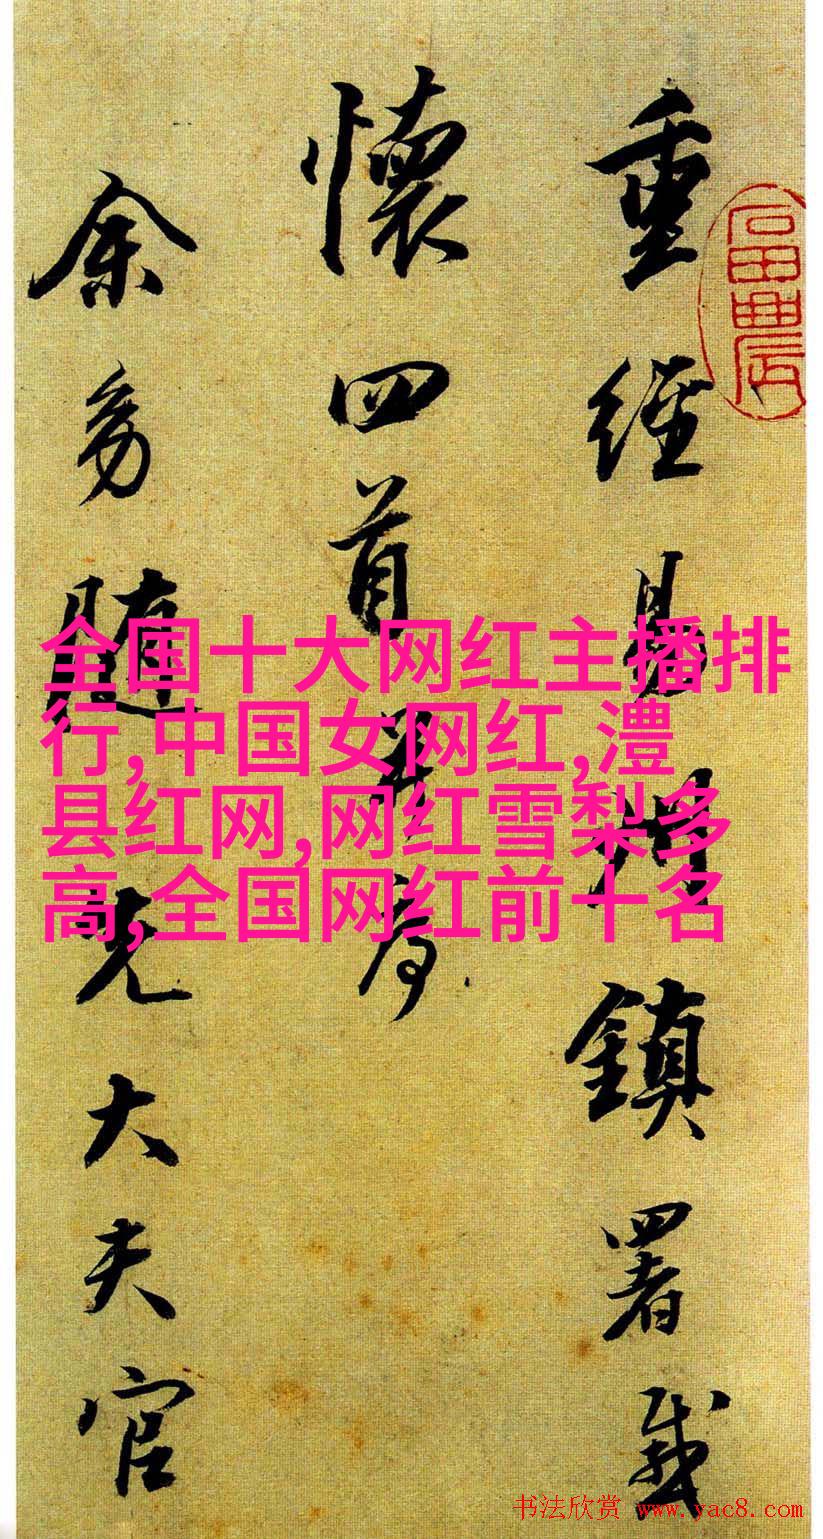 重經易州鎮署感
懷四首并序
余幼隨先大夫官
全国十大网红主播排
行,中国女网红,澧
县红网,网红雪梨多
高,全国网红前十名
书法欣赏 www.yac8.com